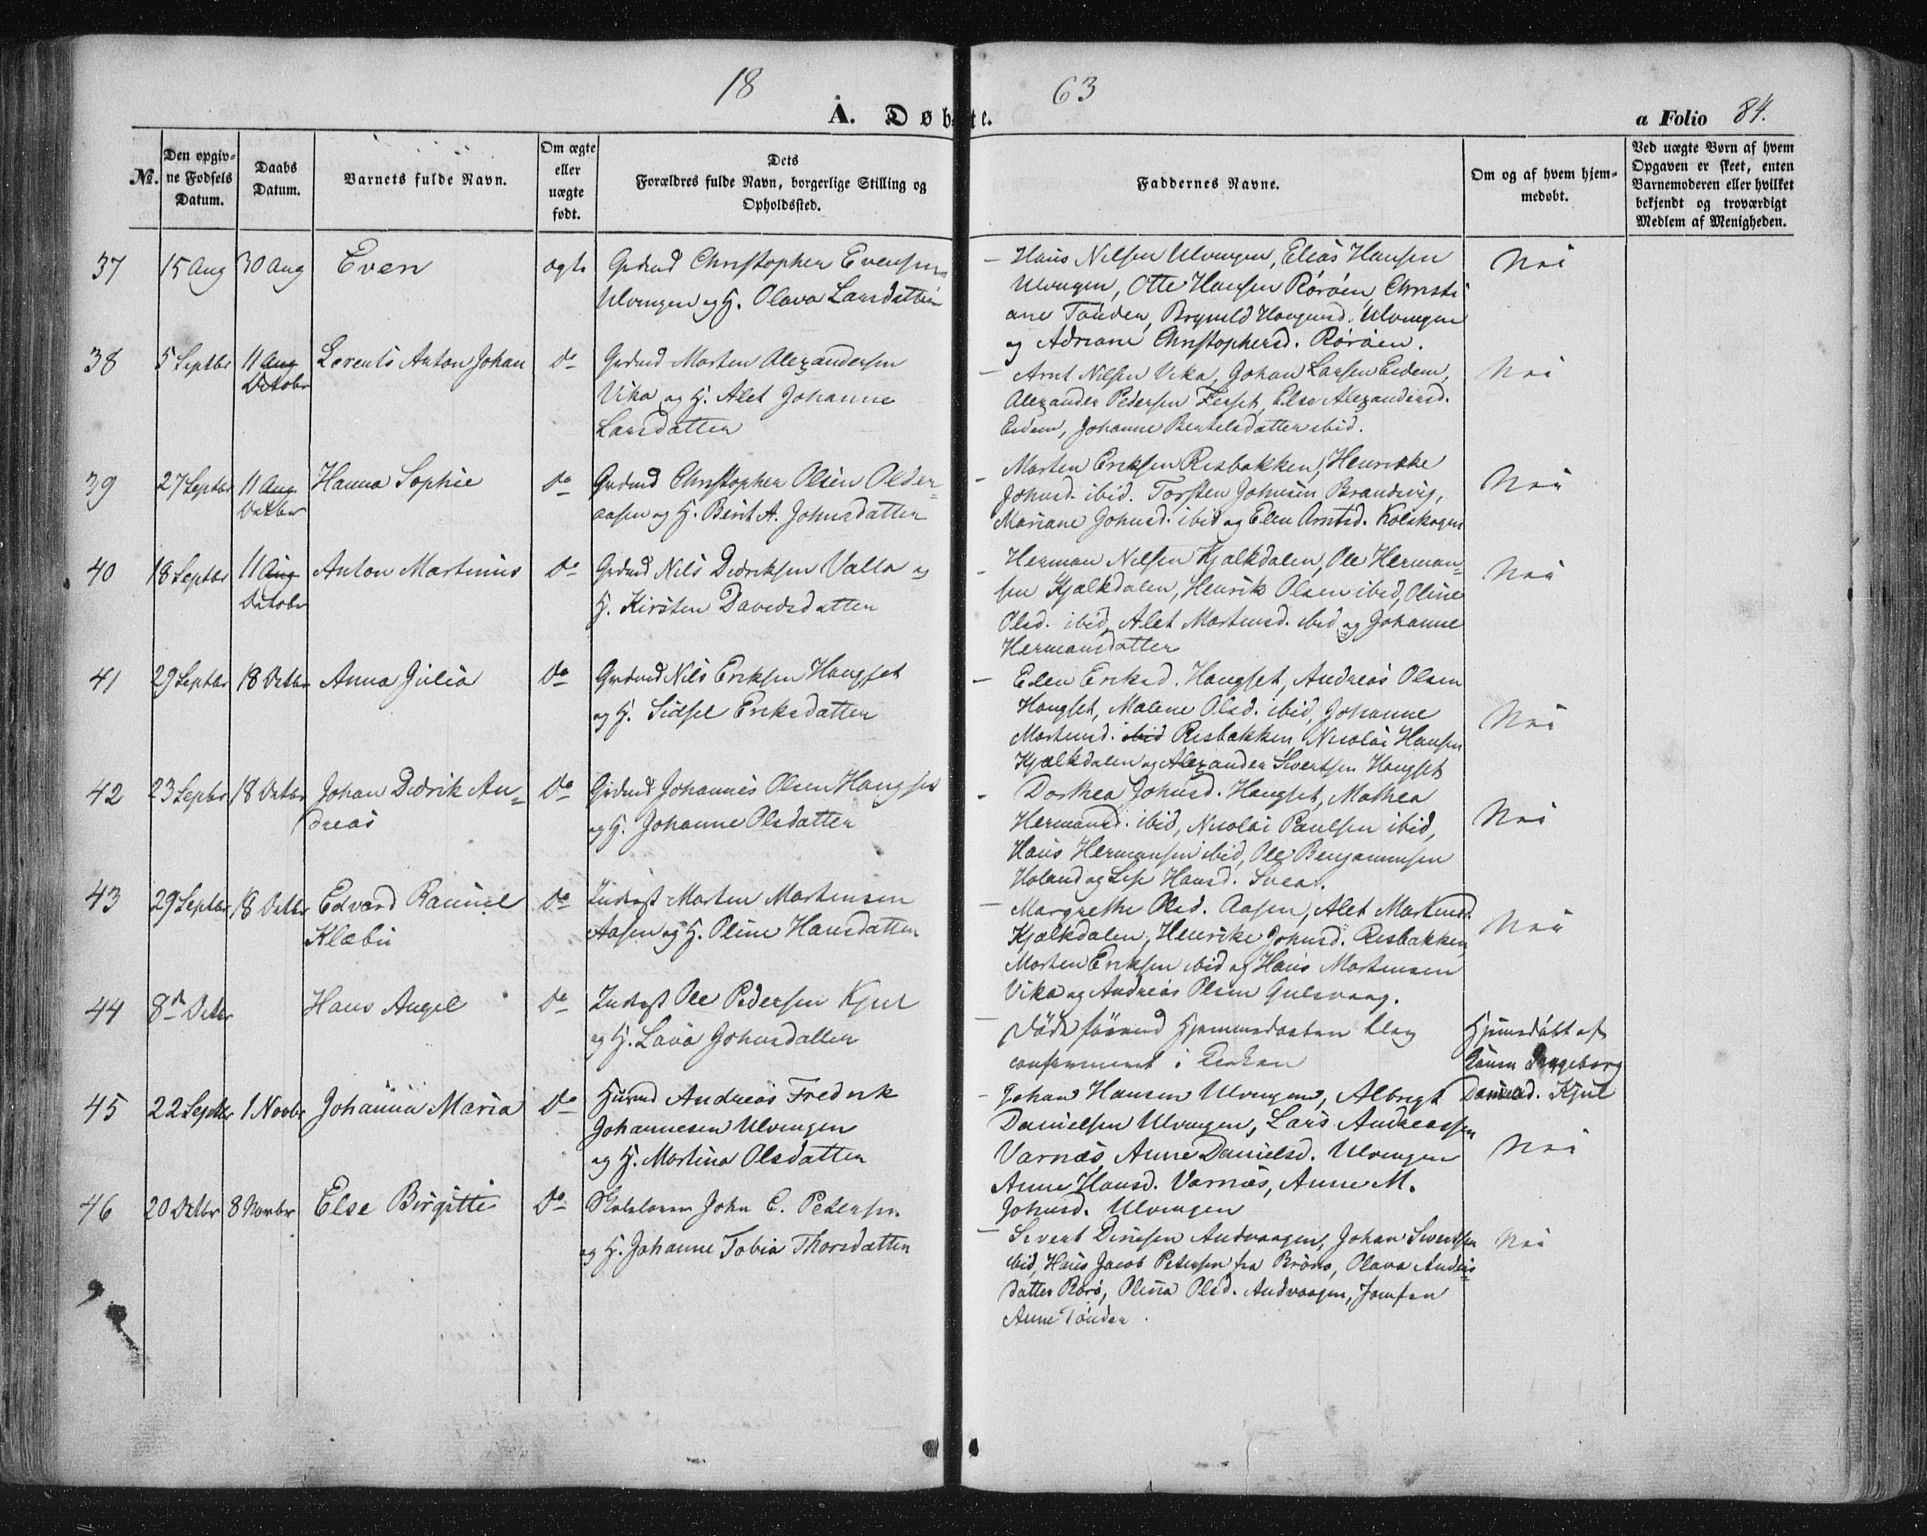 18 63
A. Døbte.
a Folio 84.
No.
Den opgiv-
ne Fødsels
Datum.
Daabs
Datum.
Barnets fulde Navn.
Om ægte
eller
uægte
født.
Dets
Forældres fulde Navn, borgerlige Stilling og
Opholdssted.
Faddernes Navne.
Om og af hvem hjem-
medøbt.
Ved uægte Børn af hvem
Opgaven er skeet, enten
Barnemoderen eller hvilket
bekjendt og troværdigt
Medlem af Menigheden.
37 15 Aug 30 Aug Even ægte Grdmd Christopher Evensen
Ulvingen og H. Olava Larsdatter
- Hans Nilsen Ulvingen, Elias Hansen
Ulvingen, Otte Hansen Rørøen, Christi
ane Tønder, Brynild Haagensd. Ulvingen
og Adriane Christophersd. Rørøen.
Nei
38 5 Septbr 11 Aug Lorents Anton Johan do Grdmd Morten Alexandersen
Octobr
Vika og H. Alet Johanne
Larsdatter
- Arnt Nilsen Vika, Johan Larsen Eidem,
Alexander Pedersen Ferset, Else Alexandersd.
Eidem, Johanne Bertelsdatter ibid.
Nei
39 27 Septbr 11 Aug Hanna Sophie do Grdmd Christopher Olsen Older-
Octbr
aasen og H. Berit A. Johnsdatter
- Morten Eriksen Resbakken, Henrikke
Johnsd. ibid. Torsten Johnsen Brandsvig,
Mariane Johnsd. ibid og Elen Arntsd. Kolskogen
Nei
40 18 Septbr 11 Aug Anton Martinus do Grdmd Nils Didriksen Valla og
Octobr
H. Kirsten Davidsdatter
- Herman Nilsen Kjælkdalen, Ole Herman-
sen Kjælkdalen, Henrik Olsen ibid, Oline
Olsd. ibid, Alet Mortensd. ibid og Johanne
Hermansdatter
Nei
41 29 Septbr 18 Octbr Anna Julia do Grdmd Nils Eriksen Haugset
og H. Sidsel Eriksdatter
- Elen Eriksd. Haugset, Andreas Olsen
Haugset, Malene Olsd. ibid, Johanne
Mortensd. ibid Resbakken, Nicolai Hansen
Kjælkdalen og Alexander Sivertsen Haugset
Nei
42 23 Septbr 18 Octbr Johan Didrik An- do Grdmd Johannes Olsen Haugset
dreas
og H. Johanne Olsdatter
- Dorthea Johnsd. Haugset, Mathea
Hermansd. ibid, Nicolai Paulsen ibid,
Hans Hermansen ibid, Ole Benjaminsen
Holand og Lise Hansd. Svea.
Nei
43 29 Septbr 18 Octbr Edvard Daniel do Inderst Morten Mortensen
Klæbu
Aasen og H. Oline Hansdatter
- Margrethe Olsd. Aasen, Alet Mortensd.
Kjælkdalen, Henrike Johnsd. Resbakken,
Morten Eriksen ibid og Hans Mortensen
Vika og Andreas Olsen Gulsvaag.
Nei
44 8de Octbr Hans Angel do Inderst Ole Pedersen Kjul
og H. Lava Johnsdatter
- Døde førend Hjemmedaaben blev
confirmeret i Kirken
Hjemdøbt af
Ingeborg
Danielsd. Kjul
45 22 Septbr 1 Novbr Johanna Maria do Huusmd Andreas Fredrik
Johannesen Ulvingen
og H. Martina Olsdatter
- Johan Hansen Ulvingen, Albregt
Danielsen Ulvingen, Lars Andreassen
Varnæs, Anne Danielsd. Ulvingen
Anne Hansd. Varnæs, Anne M.
Johnsd. Ulvingen
Nei
46 20 Octbr 8 Novbr Else Birgitte do Skolelærer John C. Pedersen
og H. Johanne Tobia Thorsdatter
- Sivert Dinesen Andvaagen, Johan Sivertsen
ibid, Hans Jacob Petersen fra Brønø, Olava Anders
datter Rørø, Olina Olsd. Andvaagen, Jomfru
Anne Tønder.
Nei